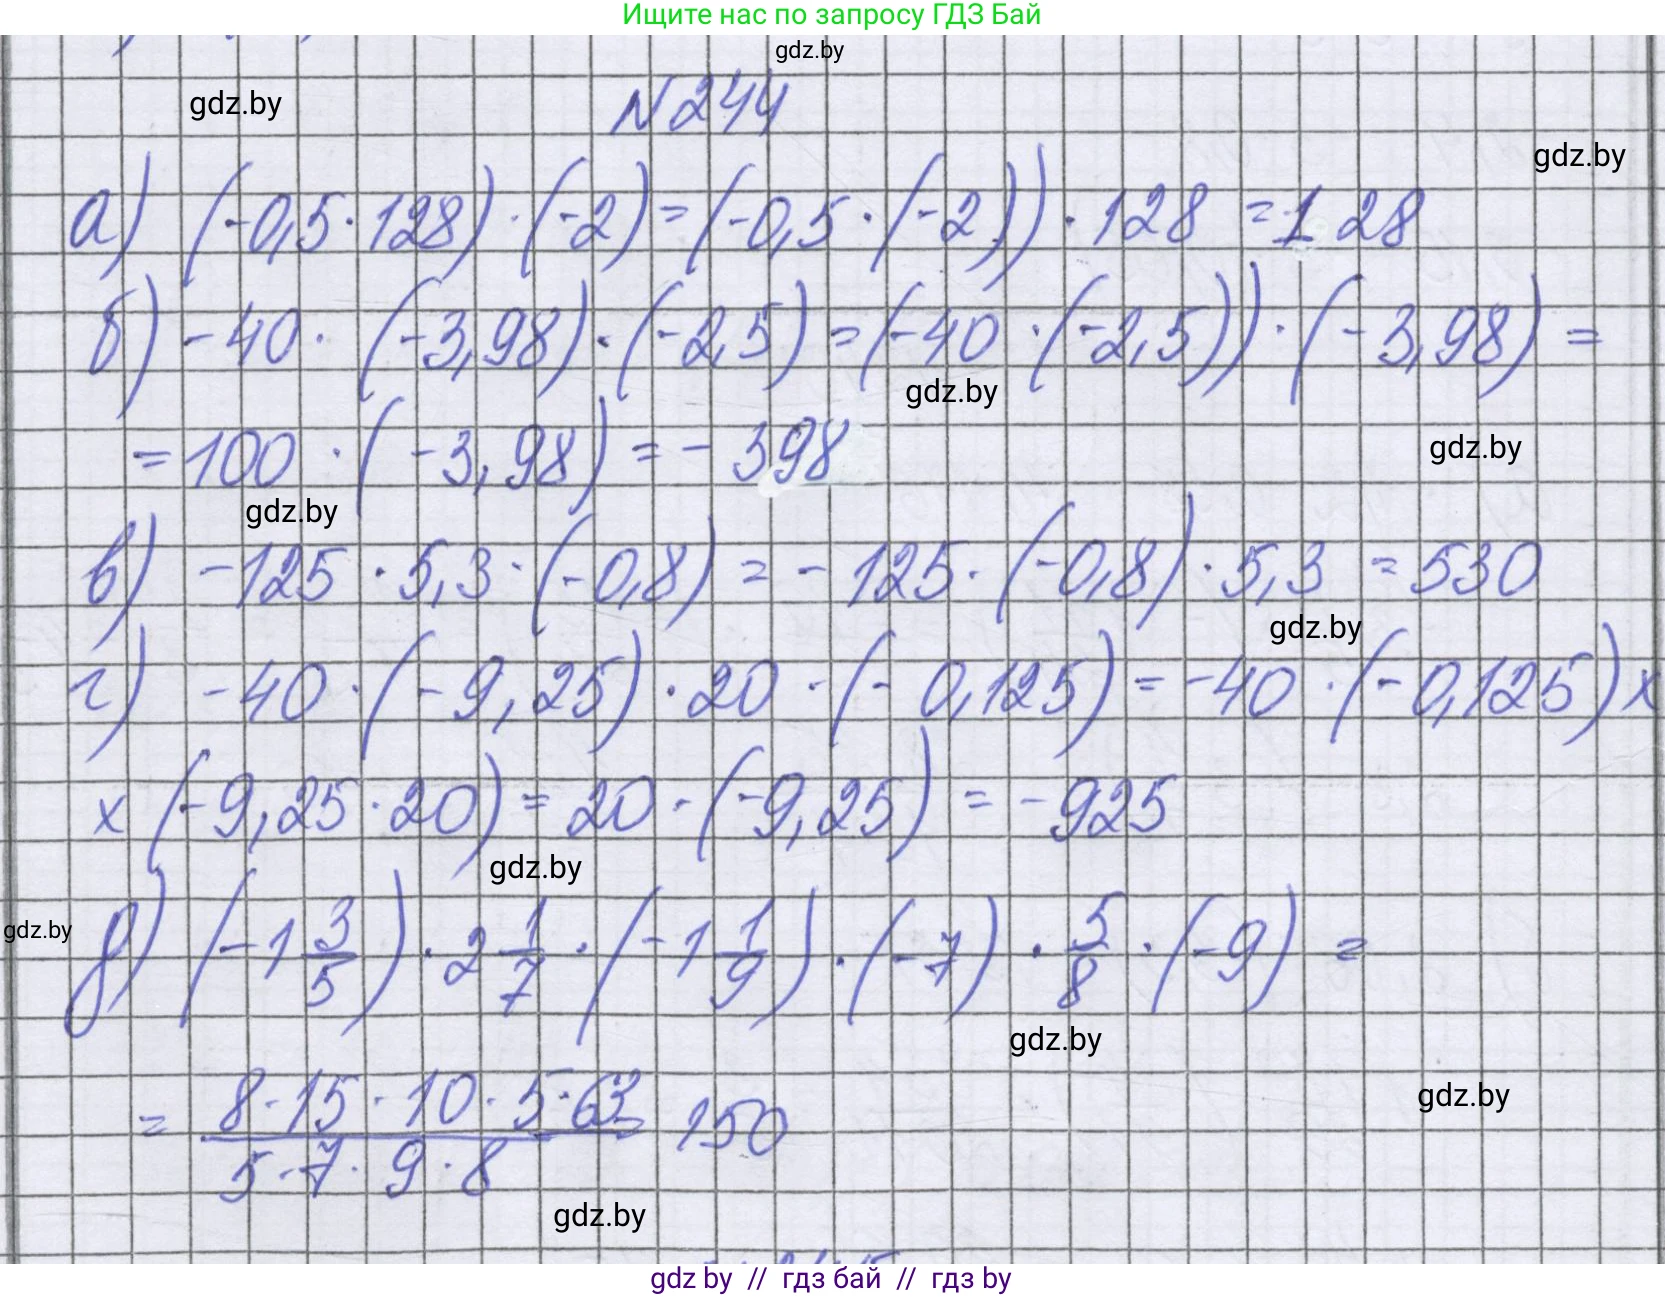 Ищите нас по запросу ГДЗ Бай
gdz.by
gdz.by
№244
gdz.by
а) (-0,5·128)·(-2)=(-0,5·(-2))·128=128
б) -40·(-3,98)·(-2,5)=(-40·(-2,5))·(-3,98)=
gdz.by
=100·(-3,98)=-398
gdz.by
gdz.by
в) -125·5,3·(-0,8)=-125·(-0,8)·5,3=530
gdz.by
г) -40·(-9,25)·20·(-0,125)=-40·(-0,125)х
х(-9,25·20)=20·(-9,25)=-925
gdz.by
gdz.by
д) (-1 3/5)·2 1/7·(-1 1/9)·(-7)·5/8·(-9)=
gdz.by
gdz.by
= 8·15·10·5·63 / 5·7·9·8 150
gdz.by
gdz by // гдз бай // гдз by